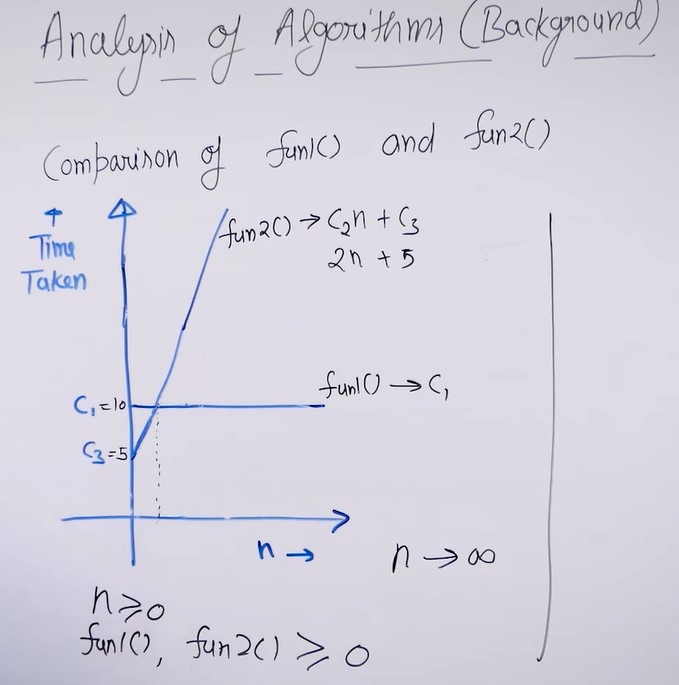 Analysis of Algorithms (Background)
Comparison of fun1() and fun2()
↑
Time
Taken
fun2() → C₂n + C₃
2n + 5
fun1() → C₁
C₁=10
C₃=5
n →
n → ∞
n ≥ 0
fun1(), fun2() ≥ 0